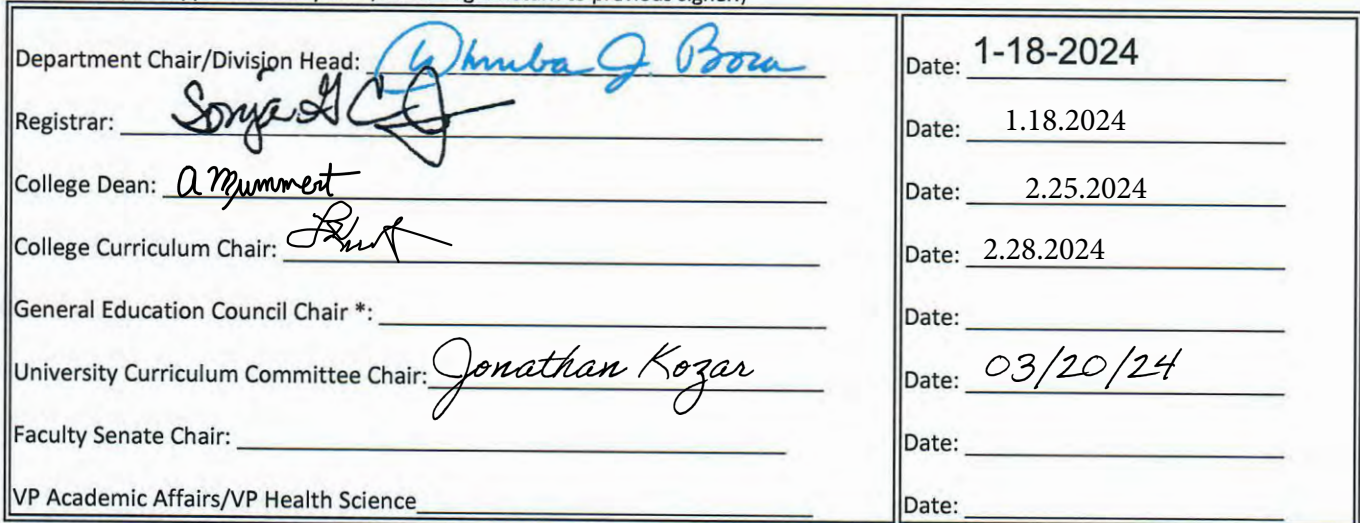 to previous signer)
Department Chair/Division Head: Dhruba J. Bora Date: 1-18-2024
Registrar: Sonja G Date: 1.18.2024
College Dean: a Mummert Date: 2.25.2024
College Curriculum Chair: Date: 2.28.2024
General Education Council Chair *: Date:
University Curriculum Committee Chair: Jonathan Kozar Date: 03/20/24
Faculty Senate Chair: Date:
VP Academic Affairs/VP Health Science Date: